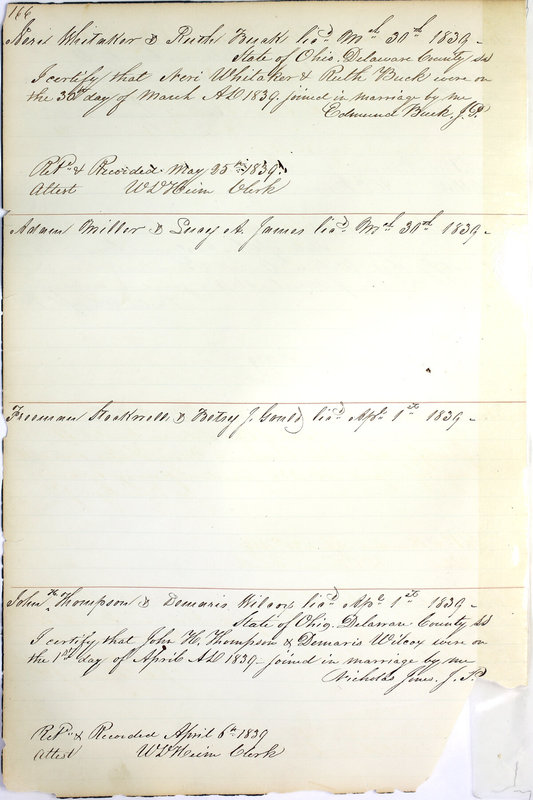 166
Neri Whitaker & Ruth Buck lic'd Mch 30th 1839 –
State of Ohio. Delaware County ss
I certify that Neri Whitaker & Ruth Buck were on
the 30th day of March AD 1839. joined in marriage by me
Edmund Buck. J.P.
Ret'd & Recorded May 25th 1839.
Attest W D Heim Clerk
Adam Miller & Lucy A. James lic'd Mch 30th 1839 –
Freeman & Betsy J. Gould lic'd Apl 1st 1839 –
John H Thompson & Demaris Wilcox lic'd Apl 1st 1839 –
State of Ohio. Delaware County ss
I certify that John H. Thompson & Demaris Wilcox were on
the 1st day of April AD 1839 – joined in marriage by me
Nicholas Jones. J.P.
Ret'd & Recorded April 6th 1839
Attest W D Heim Clerk